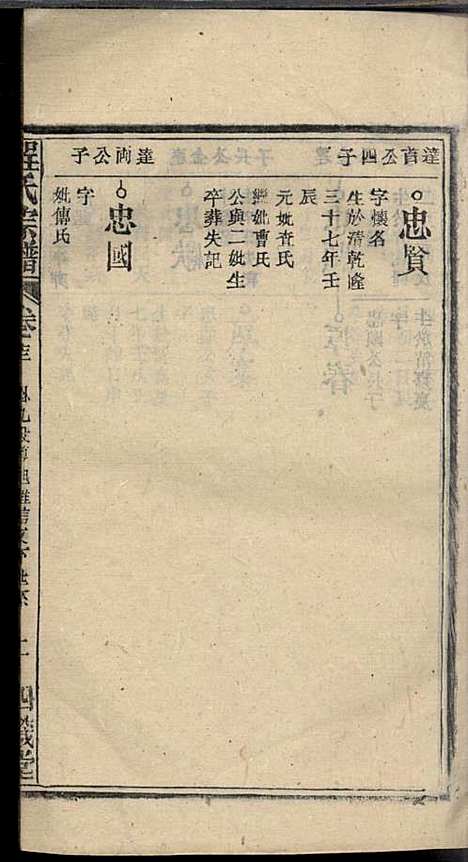 達首公四子
忠賢
字懷名
生於清乾隆
三十七年壬
辰
元妣查氏
繼妣曹氏
公與二妣生
卒葬失記
達尚公子
忠國
字
妣傅氏
氏宗譜
卷